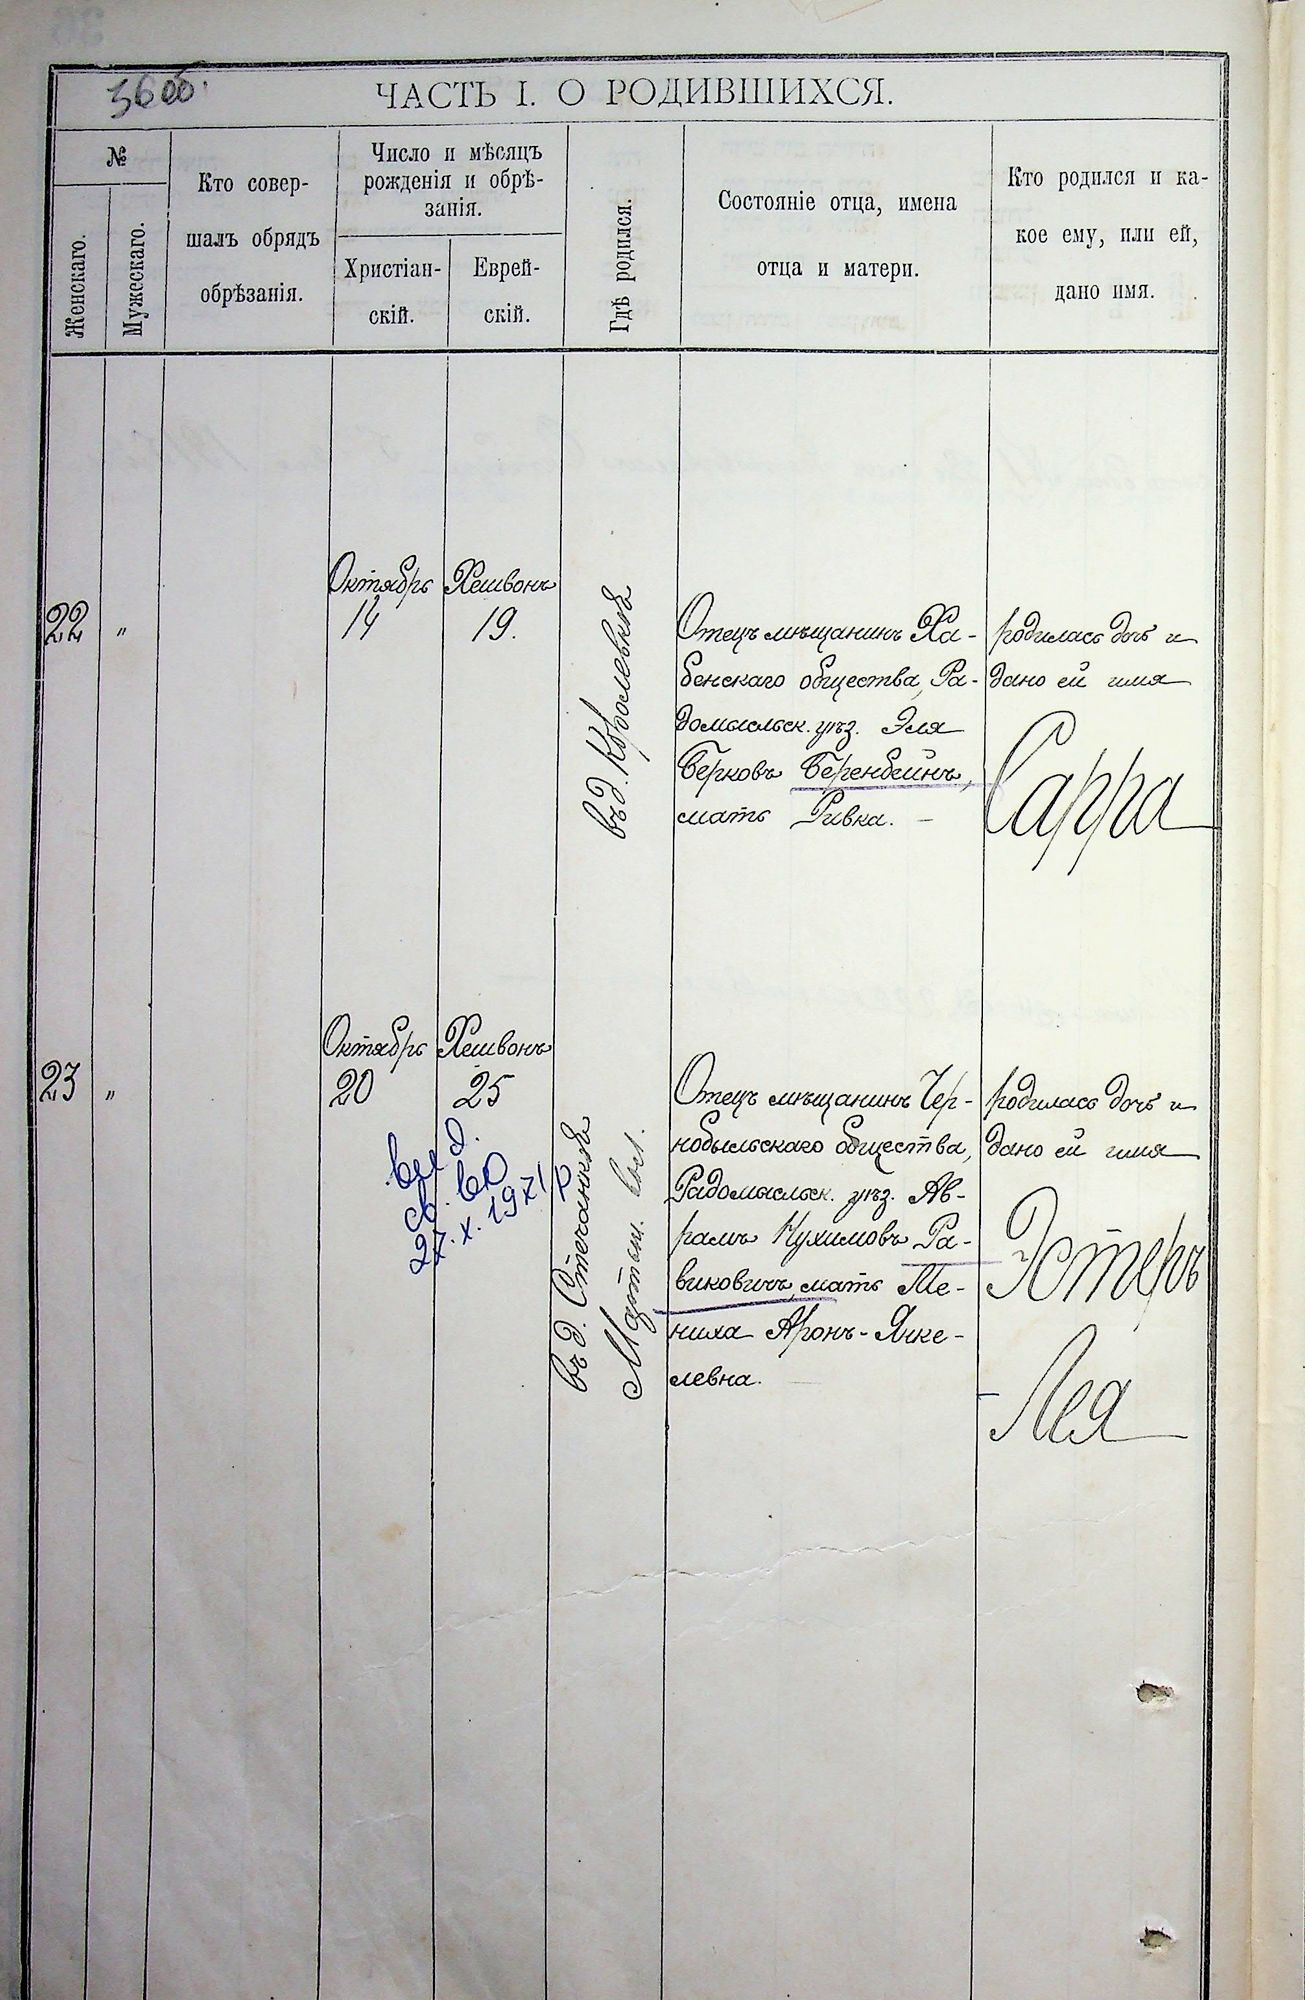 36 об.
ЧАСТЬ I. О РОДИВШИХСЯ.
№
Женскаго.
Мужескаго.
Кто совер-
шалъ обрядъ
обрѣзанія.
Число и мѣсяцъ
рожденія и обрѣ-
занія.
Христіан-
скій.
Еврей-
скій.
Гдѣ родился.
Состояніе отца, имена
отца и матери.
Кто родился и ка-
кое ему, или ей,
дано имя.
22
"
Октябрь
14
Хешвонъ
19.
въ д. Королевкѣ
Отецъ мѣщанинъ Ха-
бенскаго общества, Ра-
домысльск. уѣз. Эля
Берковъ Беренбейнъ,
мать Ривка. —
родилась дочь и
дано ей имя
Сарра
23
"
Октябрь
20
Хешвонъ
25
выд.
св. во
27.X.197
въ д. Стечанкѣ
Март. вол.
Отецъ мѣщанинъ Чер-
нобыльскаго общества,
Радомысльск. уѣз. Ав-
рамъ Нухимовъ Ра-
виковичъ, мать Ме-
ниха Аронъ-Янке-
левна. —
родилась дочь и
дано ей имя
Эстеръ
-Лея